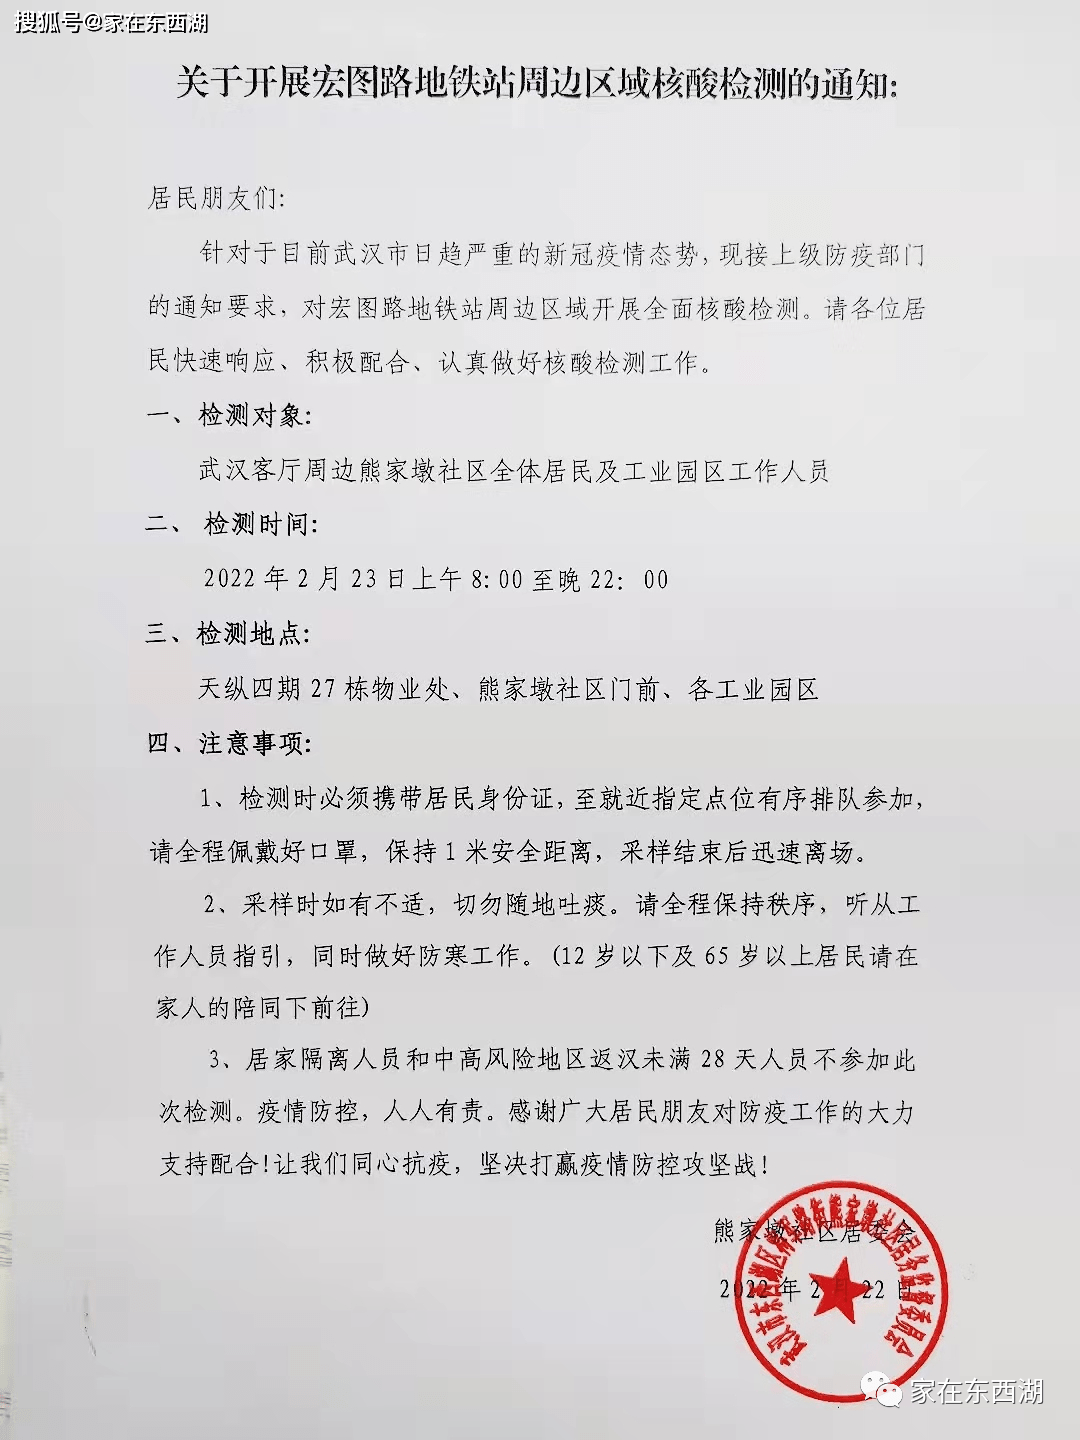 搜狐号@家在东西湖
关于开展宏图路地铁站周边区域核酸检测的通知:
居民朋友们:
针对于目前武汉市日趋严重的新冠疫情态势,现接上级防疫部门
的通知要求,对宏图路地铁站周边区域开展全面核酸检测。请各位居
民快速响应、积极配合、认真做好核酸检测工作。
一、检测对象:
武汉客厅周边熊家墩社区全体居民及工业园区工作人员
二、 检测时间:
2022年2月23日上午8:00至晚22: 00
三、检测地点:
天纵四期27栋物业处、熊家墩社区门前、各工业园区
四、注意事项:
1、检测时必须携带居民身份证,至就近指定点位有序排队参加,
请全程佩戴好口罩,保持1米安全距离,采样结束后迅速离场。
2、采样时如有不适,切勿随地吐痰。请全程保持秩序,听从工
作人员指引,同时做好防寒工作。(12岁以下及65岁以上居民请在
家人的陪同下前往)
3、居家隔离人员和中高风险地区返汉未满28天人员不参加此
次检测。疫情防控,人人有责。感谢广大居民朋友对防疫工作的大力
支持配合!让我们同心抗疫,坚决打赢疫情防控攻坚战!
熊家墩社区居委会
2022年2月22日
武汉市东西湖区将军路街熊家墩社区居务监督委员会
家在东西湖